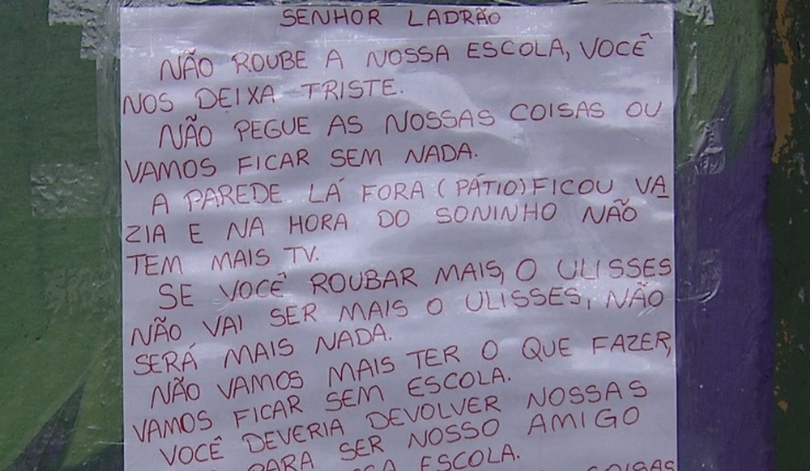 SENHOR LADRÃO
NÃO ROUBE A NOSSA ESCOLA, VOCÊ
NOS DEIXA TRISTE.
NÃO PEGUE AS NOSSAS COISAS OU
VAMOS FICAR SEM NADA.
A PAREDE LÁ FORA (PÁTIO) FICOU VA
ZIA E NA HORA DO SONINHO NÃO
TEM MAIS TV.
SE VOCÊ ROUBAR MAIS, O ULISSES
NÃO VAI SER MAIS O ULISSES, NÃO
SERÁ MAIS NADA.
NÃO VAMOS MAIS TER O QUE FAZER,
VAMOS FICAR SEM ESCOLA.
VOCÊ DEVERIA DEVOLVER NOSSAS
PARA SER NOSSO AMIGO
ESCOLA.
COISAS